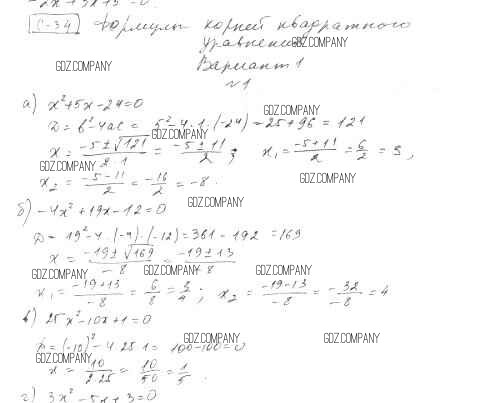 -2x+3x+5=0.
С-34 Формулы корней квадратного
уравнения
GDZ.COMPANY
GDZ.COMPANY
Вариант 1
№1
GDZ.COMPANY
а) x²+5x-24=0
D = b²-4ac = 5²-4·1·(-24) = 25+96 = 121
GDZ.COMPANY
x = (-5±√121)/(2·1) = (-5±11)/2 ; x₁ = (-5+11)/2 = 6/2 = 3,
GDZ.COMPANY
GDZ.COMPANY
x₂ = (-5-11)/2 = -16/2 = -8.
GDZ.COMPANY
б) -4x²+19x-12=0
D = 19²-4·(-4)·(-12)=361-192=169
x = (-19±√169)/-8 = (-19±13)/-8
GDZ.COMPANY GDZ.COMPANY GDZ.COMPANY
x₁ = (-19+13)/-8 = 6/8 = 3/4 ; x₂ = (-19-13)/-8 = -32/-8 = 4
в) 25x²-10x+1=0
GDZ.COMPANY GDZ.COMPANY
D = (-10)²-4·25·1 = 100-100=0
GDZ.COMPANY
x = 10/(2·25) = 10/50 = 1/5.
г) 3x²-5x+3=0